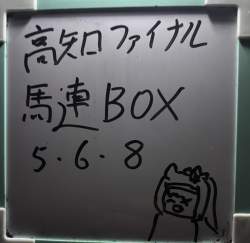 高知ファイナル
馬連BOX
5・6・8